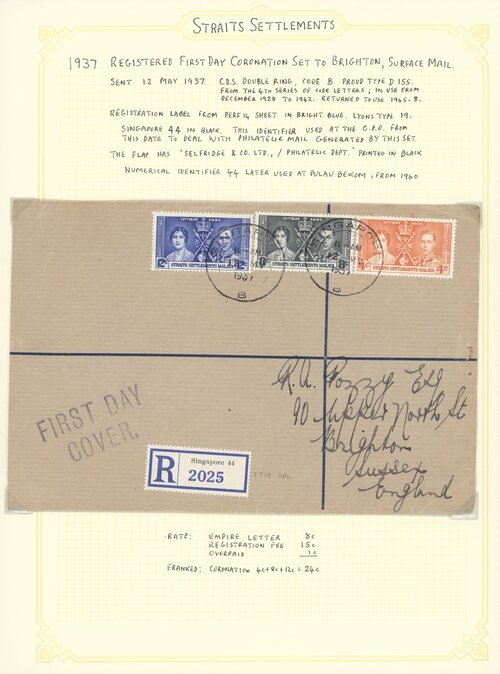 STRAITS SETTLEMENTS
1937 REGISTERED FIRST DAY CORONATION SET TO BRIGHTON, SURFACE MAIL.
SENT 12 MAY 1937. C.D.S. DOUBLE RING, CODE B PROUD TYPE D 155.
FROM THE 4TH SERIES OF CODE LETTERS; IN USE FROM
DECEMBER 1928 TO 1942. RETURNED TO USE 1945-8.
REGISTRATION LABEL FROM PERF 14 SHEET IN BRIGHT BLUE. LYONS TYPE 19.
SINGAPORE 44 IN BLACK. THIS IDENTIFIER USED AT THE G.P.O. FROM
THIS DATE TO DEAL WITH PHILATELIC MAIL GENERATED BY THIS SET.
THE FLAP HAS 'SELFRIDGE & CO. LTD., / PHILATELIC DEPT.' PRINTED IN BLACK
NUMERICAL IDENTIFIER 44 LATER USED AT PULAU BEKOM, FROM 1960
12TH MAY 1937.
12c 12c
STRAITS SETTLEMENTS MALAYA
12TH MAY 1937.
8c 8c
STRAITS SETTLEMENTS MALAYA
12TH MAY 1937.
4c 4c
STRAITS SETTLEMENTS MALAYA
SINGAPORE
1937
B
SINGAPORE
AM
1937
B
R.A. Pozzy Esq
90 Upper North St
Brighton
Sussex
England
FIRST DAY
COVER.
R
Singapore 44
2025
LT19 GPO
RATE: EMPIRE LETTER 8c
REGISTRATION FEE 15c
OVERPAID 1c
FRANKED: CORONATION 4c+8c+12c = 24c